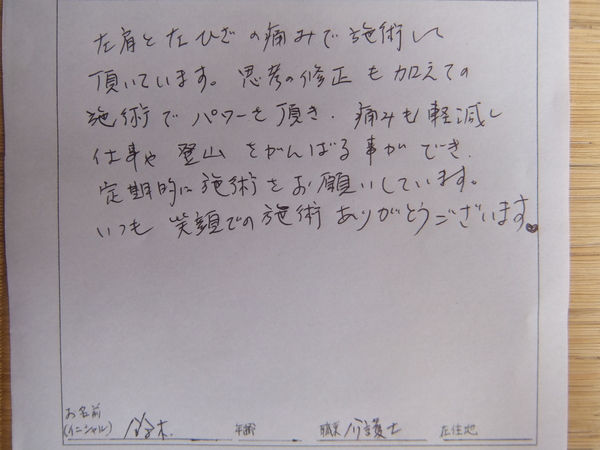 左肩と左ひざの痛みで施術して
頂いています。思考の修正も加えての
施術でパワーを頂き、痛みも軽減し
仕事や登山をがんばる事ができ、
定期的に施術をお願いしています。
いつも笑顔での施術ありがとうございます
お名前
(イニシャル) 鈴木 年齢 職業 介護士 在住地